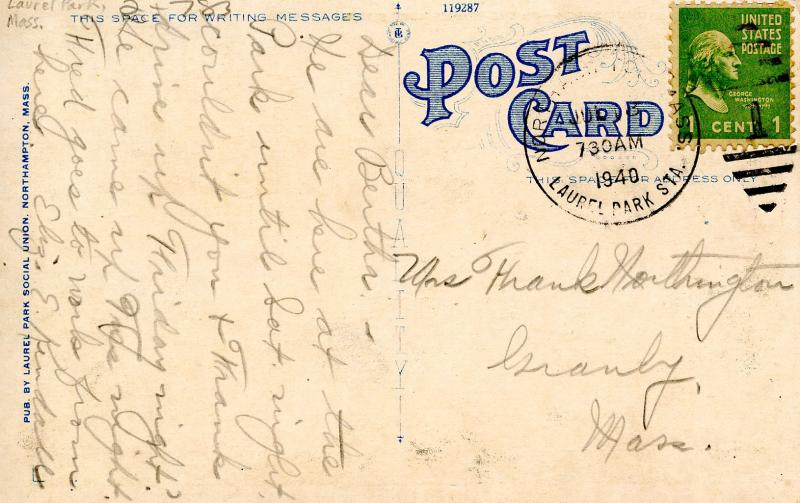 Laurel Park,
Mass.
THIS SPACE FOR WRITING MESSAGES
119287
POST
CARD
THIS SPACE FOR ADDRESS ONLY
UNITED
STATES
POSTAGE
GEORGE
WASHINGTON
1 CENT 1
MASS
JUL
730AM
1940
LAUREL PARK STA.
QUALITY
PUB. BY LAUREL PARK SOCIAL UNION, NORTHAMPTON, MASS.
Dear Bertha -
We are here at the
Park until Sat. night.
Scouldn't you & Frank
drive up Friday night?
We came up Tues night
Fred goes to work from
here. Eliz. E. Kendall
Mrs Frank Northington
Granby,
Mass.